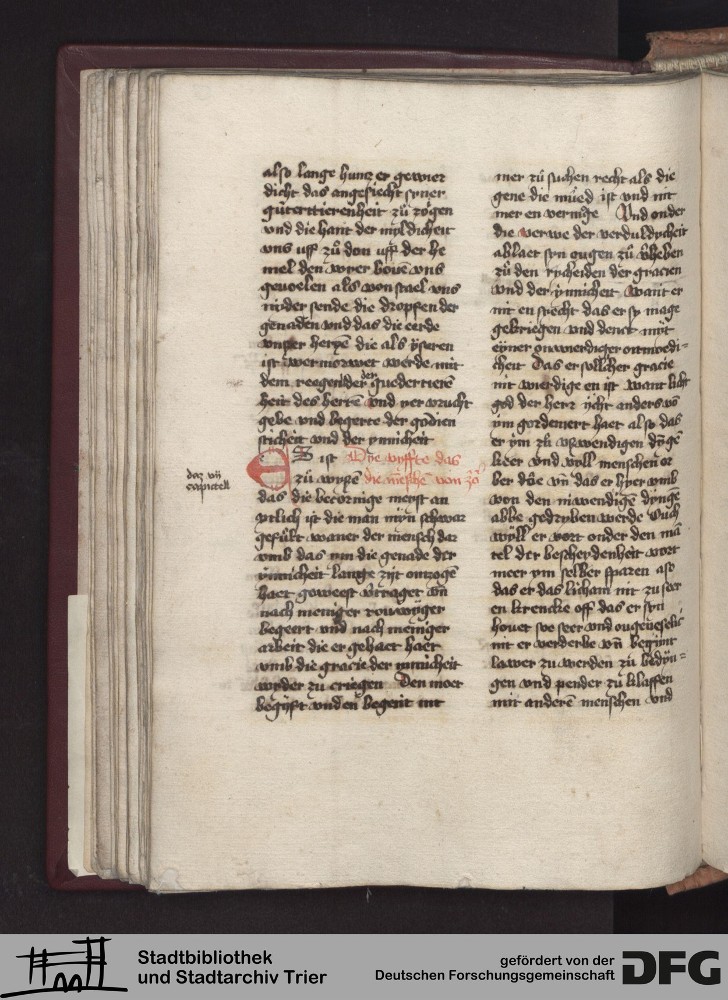 also lange huntz er gewier
dicht das angesiecht syner
gůtertierenheit zů zőgen
vnd die hant der myldicheit
vns uff zů don uff der he
mel den wyer bouē vns
geuoelen als von stael vns
nyder sende die dropfen der
genaden vnd das die eerde
vnser hertzē die als ÿseren
ist wermorwet werde mit
dem reegender der guedertieren
heit des herrē vnd yer vrucht
gebe vnd begerte der gődien
sticheit vnd der ynnicheit
ES ist Dye vyffte das
zů wyssen die mēschē von
das die becornige meyst an
das vij
capittell
ytlich ist die man myn schwar
gefült waner der mensch dar
vmb das ym die genade der
ynnicheit lange zijt ontzogē
haet geweest vtraget vn̄
nach meniger rouwyger
begeert vnd nach meniger
arbeit die er gehaet haet
vmb die gracie der ynnicheit
wyder zu criegen Den moet
begÿft vnd en begerit nit
mer zů suchen recht als die
gene die můed ist vnd nit
mer en vermoge Vnd onder
die verwe der verduldycheit
ablaet syn ougen zů vͤheben
zů den rycheiden der gracien
vnd der ynnicheit want er
nit en sycht das er sy mage
gekriegen vnd denct myt
eyner onwierdiger oitmoedi=
cheit das er sollicher gracie
nit wierdige en ist want licht
god der herr ycht anders vō
ym gordeniert haet also das
er ym zů vswendigen dőgē
keer vnd wyll menschen or
ber dōe vn̄ das er hyer vmb
von den niwendigen dyngē
abbe gedryben werde Ouch
wyll er vort onder den mā
tel der bescherdenheit vort
meer ym selber sparen also
das er das licham nit zu seer
en krencke off das er syn
houet soe seer vnd ongeueselic
nit er verderbe vn̄ begynt
lawer zu werden zů bedyn=
gen vnd pender zů klaffen
mit anderē menschen vnd
Stadtbibliothek
und Stadtarchiv Trier
gefördert von der
Deutschen Forschungsgemeinschaft
DFG